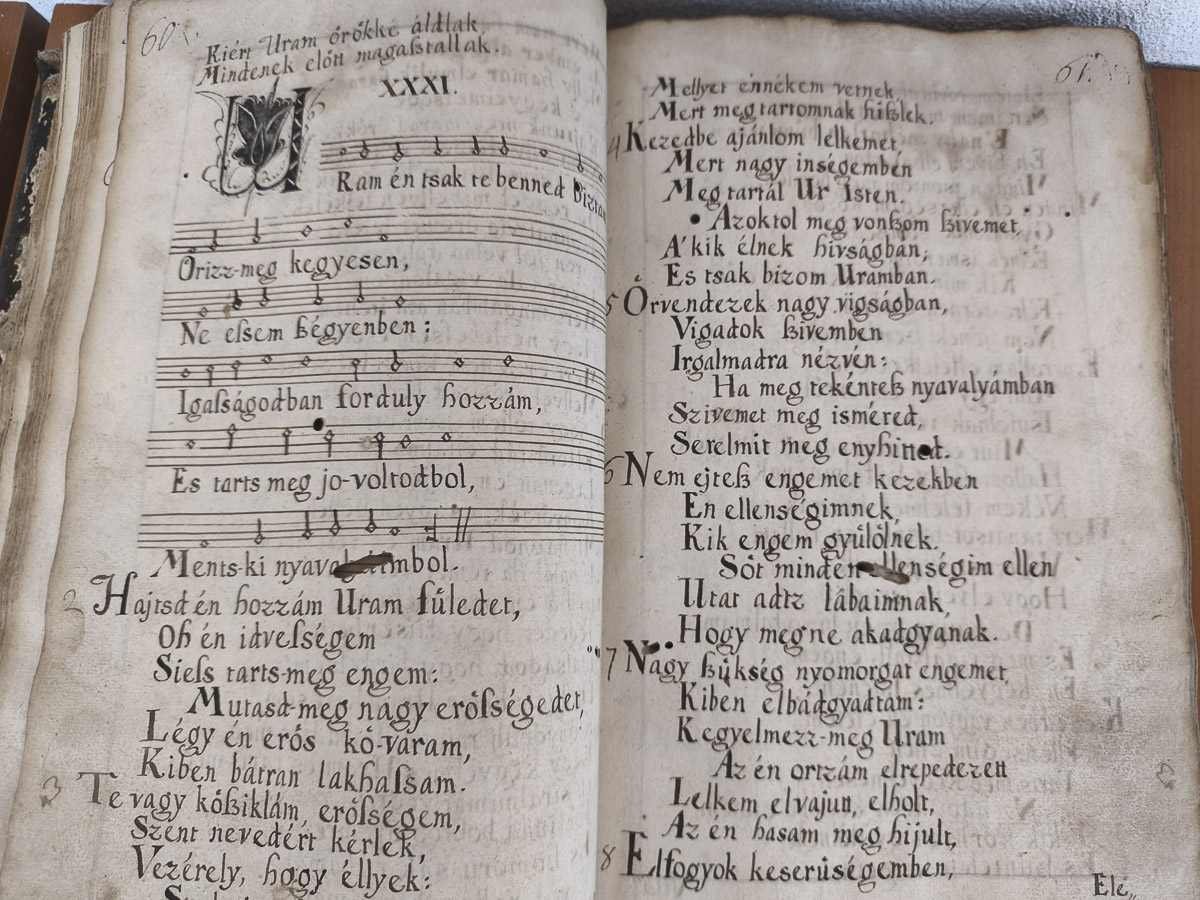 60.
Kiért Uram örökké áldlak
Mindenek előtt magaßtallak.
XXXI.
URam én tsak te benned Biztam
Orizz-meg kegyesen,
Ne eſsem ßégyenben:
Igaſságodban forduly hozzám,
Es tarts meg jo-voltodbol,
Ments-ki nyavalyáimbol.
2 Hajtsd én hozzám Uram füledet,
Oh én idveſségem
Sieſs tarts-meg engem:
Mutasd-meg nagy erőſségedet,
Légy én erős kő-váram,
Kiben bátran lakhaſsam.
3 Te vagy kőßiklám, erőſségem,
Szent nevedért kérlek,
Vezérely, hogy éllyek:
61.
Mellyet énnékem vetnek
Mert meg tartomnak hißlek.
4 Kezedbe ajánlom lelkemet,
Mert nagy inségemben
Meg tartál Ur Isten.
Azoktol meg vonßom ßivemet,
A' kik élnek hivságban;
Es tsak bizom Uramban.
5 Örvendezek nagy vigságban,
Vigadok ßivemben
Irgalmadra nézvén:
Ha meg tekénteß nyavalyámban
Szivemet meg isméred,
Serelmit meg enyhited.
6 Nem ejteß engemet kezekben
En ellenségimnek,
Kik engem gyülölnek.
Sőt minden ellenségim ellen
Utat adtz lábaimnak,
Hogy megne akadgyanak.
7 Nagy ßükség nyomorgat engemet,
Kiben elbádgyadtam:
Kegyelmezz-meg Uram
Az én ortzám elrepedezett
Lelkem elvajutt, elholt,
Az én hasam meg hijult,
8 Elfogyok keserüségemben,
Ele,,